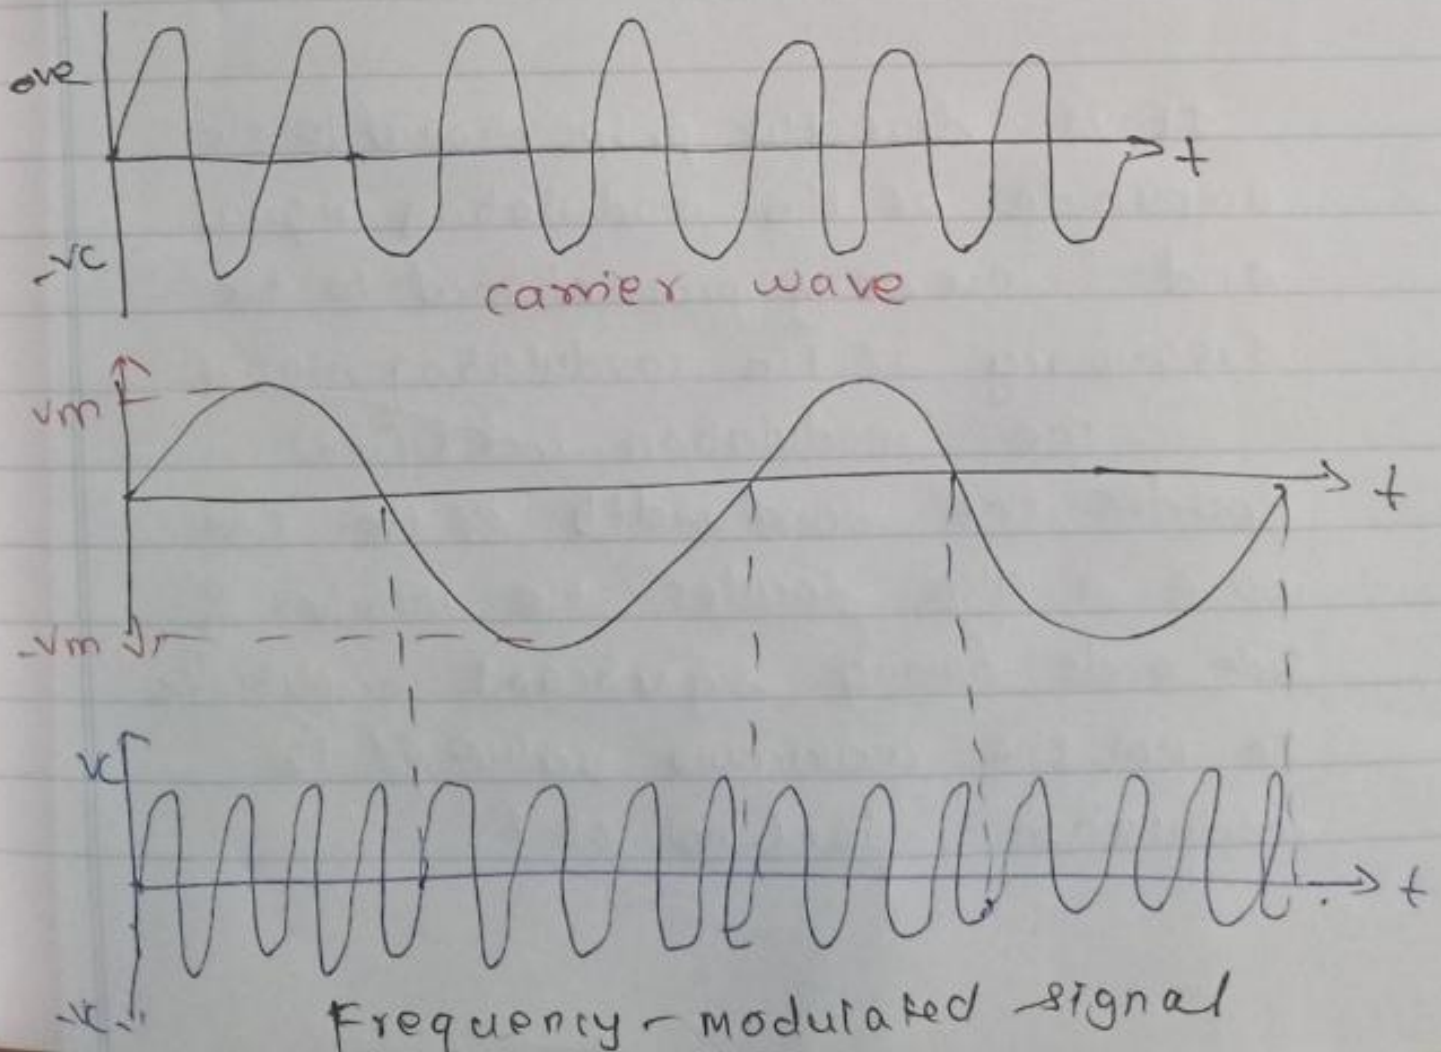 ove
t
-vc
carrier wave
vm
t
-vm
vc
t
-vc
Frequency-modulated signal